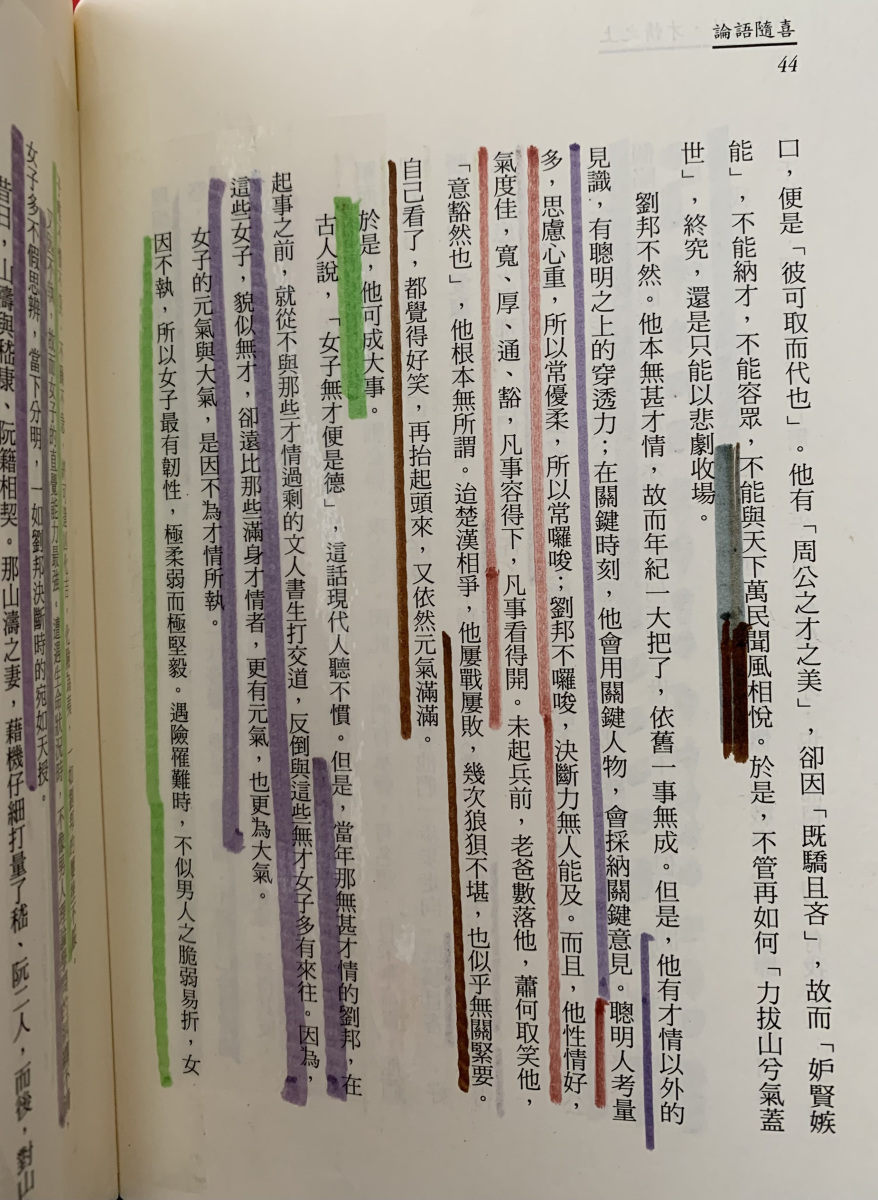 論語隨喜
44
口，便是「彼可取而代也」。他有「周公之才之美」，卻因「既驕且吝」，故而「妒賢嫉
能」，不能納才，不能容眾，不能與天下萬民聞風相悅。於是，不管再如何「力拔山兮氣蓋
世」，終究，還是只能以悲劇收場。
劉邦不然。他本無甚才情，故而年紀一大把了，依舊一事無成。但是，他有才情以外的
見識，有聰明之上的穿透力；在關鍵時刻，他會用關鍵人物，會採納關鍵意見。聰明人考量
多，思慮心重，所以常優柔，所以常囉唆；劉邦不囉唆，決斷力無人能及。而且，他性情好，
氣度佳，寬、厚、通、豁，凡事容得下，凡事看得開。未起兵前，老爸數落他，蕭何取笑他，
「意豁然也」，他根本無所謂。迨楚漢相爭，他屢戰屢敗，幾次狼狽不堪，也似乎無關緊要。
自己看了，都覺得好笑，再抬起頭來，又依然元氣滿滿。
於是，他可成大事。
古人說，「女子無才便是德」，這話現代人聽不慣。但是，當年那無甚才情的劉邦，在
起事之前，就從不與那些才情過剩的文人書生打交道，反倒與這些無才女子多有來往。因為，
這些女子，貌似無才，卻遠比那些滿身才情者，更有元氣，也更為大氣。
女子的元氣與大氣，是因不為才情所執。
因不執，所以女子最有韌性，極柔弱而極堅毅。遇險罹難時，不似男人之脆弱易折，女
女子多不假思辨，當下分明，一如劉邦決斷時的宛如天授。
昔日，山濤與嵇康、阮籍相契。那山濤之妻，藉機仔細打量了嵇、阮二人，而後，對山